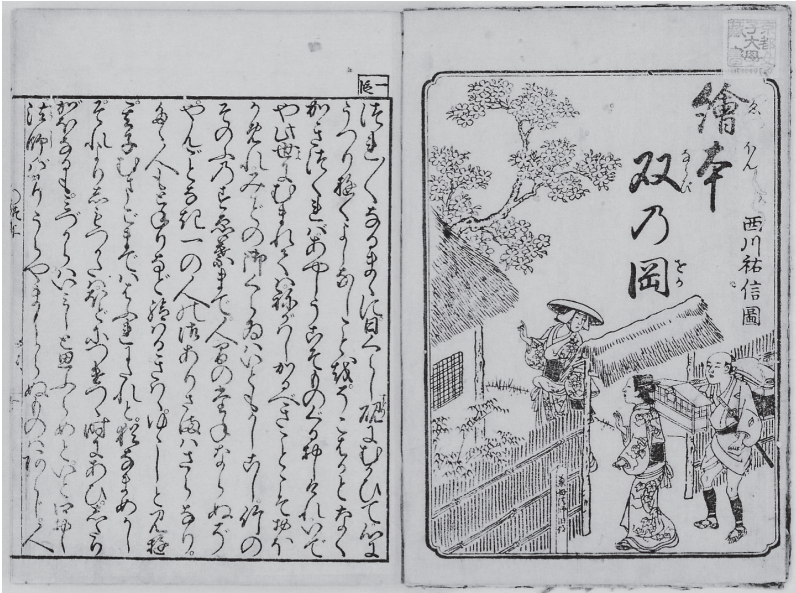 繪本
ゑほん
双乃岡
ならび をか
西川祐信圖
つれ〳〵なるまゝに日くらし硯にむかひて心に
うつり行くよしなしことをそこはかとなく
かきつくればあやしうこそものぐるおしけれいで
や此世にむまれてはねがはしかるべきことこそおほ
かめれみかどの御くらゐはいともかしこし竹の
そのふのすゑ葉まで人間のたねならぬぞ
やんごとなき一の人の御ありさまはさらなり。
たゞ人もとねりなど給はるきははゆゝしと見ゆ
其子むまごまでははふれにたれど猶なまめかし
それよりしもつかたはほどにつけつゝ時にあひしたり
がほなるもみづからはいみじと思ふらめといと口おし
法師ばかりうらやましからぬものはあらじ人